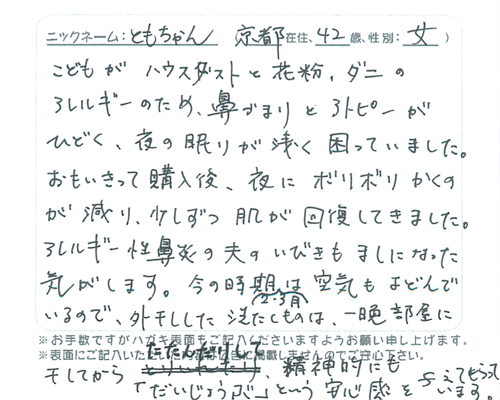 ニックネーム:ともちゃん 京都在住、42歳、性別:女)
こどもが ハウスダストと花粉、ダニの
アレルギーのため、鼻づまりとアトピーが
ひどく、夜の眠りが浅く困っていました。
おもいきって購入後、夜にボリボリかくの
が減り、少しずつ肌が回復してきました。
アレルギー性鼻炎の夫のいびきもましになった
気がします。今の時期は空気もよどんで
(2・3月)
いるので、外干しした洗たくものは、一晩部屋に
※お手数ですがハガキ表面もご記入くださいますようお願い申し上げます。
※表面にご記入いた
に掲載しませんのでご安心下さい。
干してから たたんだりして、精神的にも
「だいじょうぶ」という安心感を与えてもらって
います。